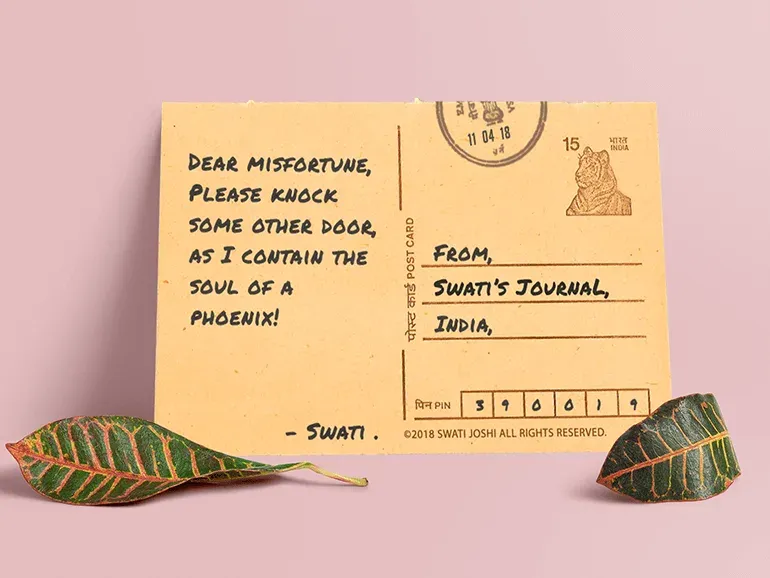 DEAR MISFORTUNE,
PLEASE KNOCK
SOME OTHER DOOR,
AS I CONTAIN THE
SOUL OF A
PHOENIX!
- SWATI .
पोस्ट कार्ड POST CARD
11 04 18
15 भारत
INDIA
FROM,
SWATI'S JOURNAL,
INDIA,
पिन PIN 3 9 0 0 1 9
©2018 SWATI JOSHI ALL RIGHTS RESERVED.